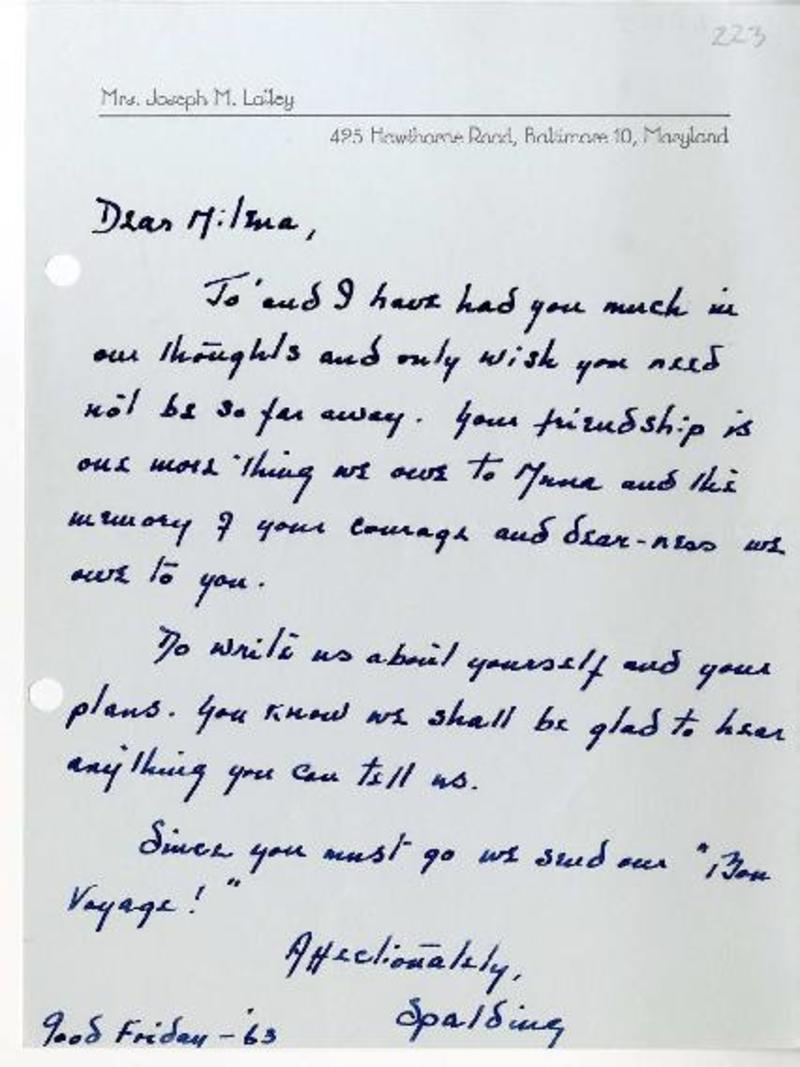 223
Mrs. Joseph M. Lalley
495 Hawthorne Road, Baltimore 10, Maryland
Dear Milena,
Jo and I have had you much in
our thoughts and only wish you need
not be so far away. Your friendship is
one more thing we owe to Anna and the
memory of your courage and dear-ness we
owe to you.
Do write us about yourself and your
plans. You know we shall be glad to hear
anything you can tell us.
Since you must go we send our "Bon
Voyage!"
Affectionately,
Spalding
Good Friday - '63